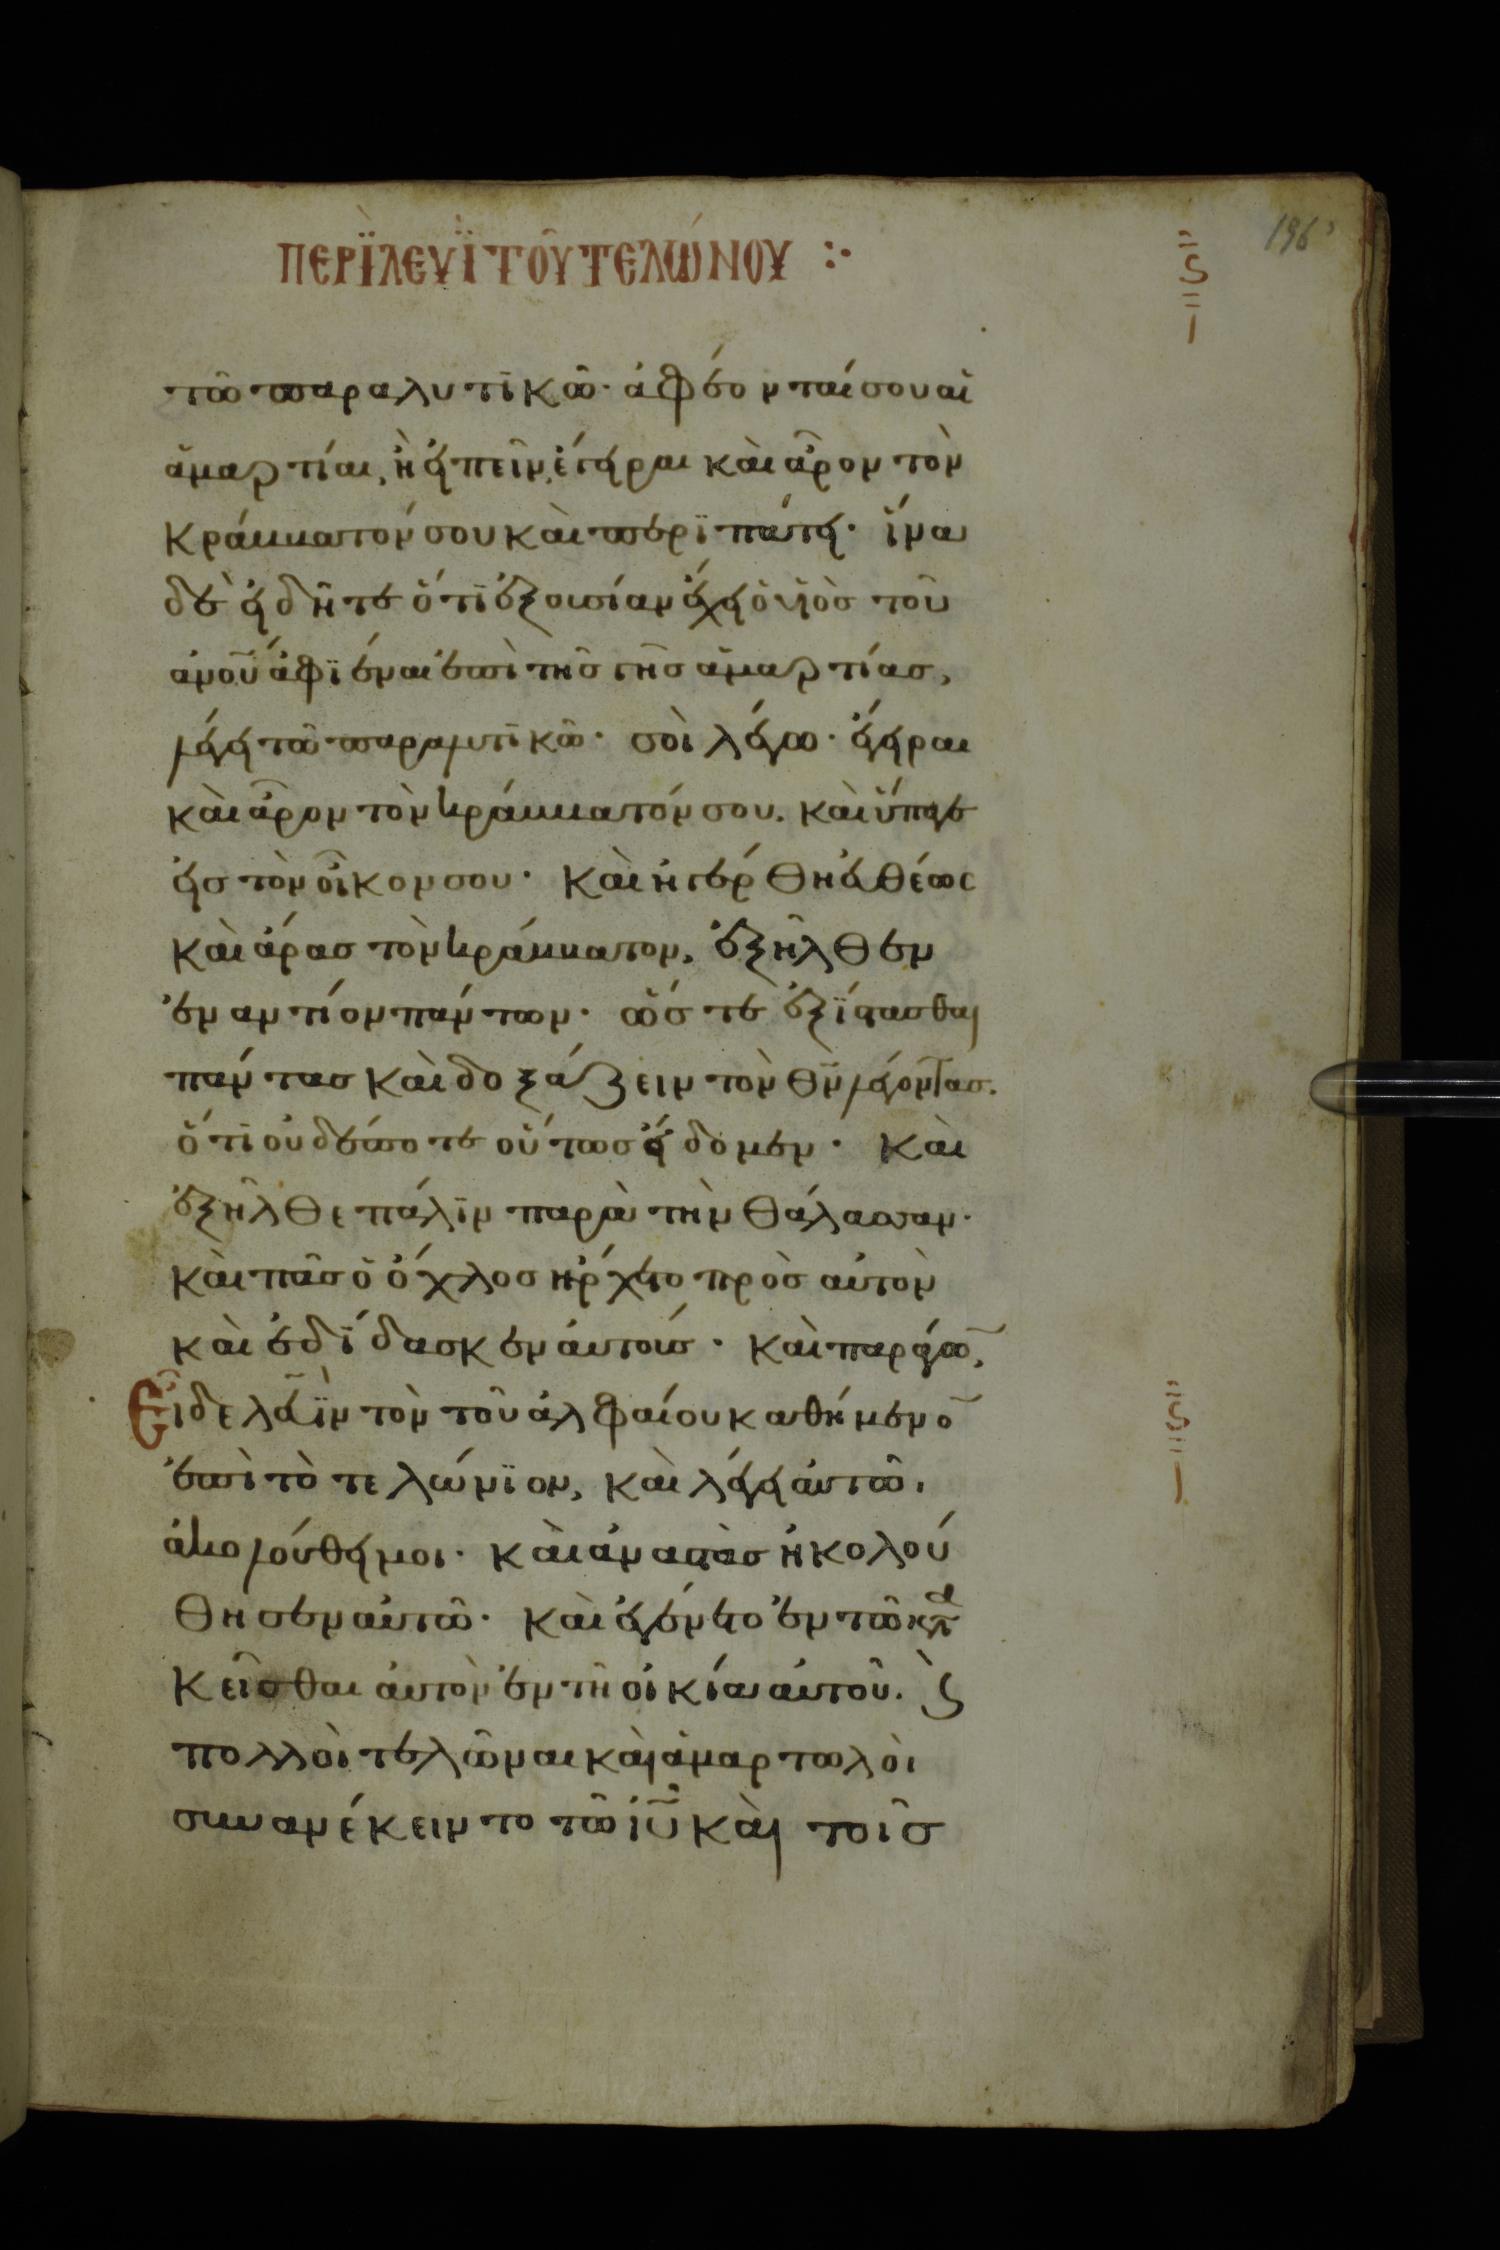 ΠΕΡῚ ΛΕΥῚ ΤΟῦ ΤΕΛΏΝΟΥ :·
τῶ παραλυτικῶ· ἀφέονταί σου αἱ
ἁμαρτίαι, ἢ εἰπεῖν, ἔγειραι καὶ ἆρον τὸν
κράμματόν σου καὶ περιπάτει· ἵνα
δὲ εἰδῆτε ὅτι ἐξουσίαν ἔχει ὁ υἱὸσ τοῦ
ἀνοῦ ἀφιέναι ἐπὶ τῆσ γῆσ ἁμαρτίασ,
λέγει τῶ παραλυτικῶ· σοὶ λέγω· ἔγειραι
καὶ ἆρον τὸν κράμματόν σου. καὶ ὕπαγε
εἰσ τὸν οἶκον σου· Καὶ ἠγέρθη εὐθέωσ
καὶ ἄρασ τὸν κράμματον, ἐξῆλθεν
ἐναντίον πάντων· ὥστε ἐξίστασθαι
πάντασ καὶ δοξάζειν τὸν θν λέγοντασ.
ὅτι οὐδέποτε οὕτωσ εἴδομεν· Καὶ
ἐξῆλθε πάλιν παρὰ τὴν θάλασσαν·
καὶ πᾶσ ὁ ὄχλοσ ἤρχετο πρὸσ αὐτὸν
καὶ ἐδίδασκεν αὐτούσ· καὶ παράγω,
Εἶδε λευῒν τὸν τοῦ ἀλφαίου καθήμενο
ἐπὶ τὸ τελώνιον, καὶ λέγει αὐτῶ.
ἀκολούθει μοι· καὶ ἀναστὰσ ἠκολού
θησεν αὐτῶ· καὶ ἐγένετο ἐν τῶ κατα
κεῖσθαι αὐτὸν ἐν τῆ οἰκία αὐτοῦ. ϛ
πολλοὶ τελῶναι καὶ ἁμαρτωλοὶ
συνανέκειντο τῶ ιυ καὶ τοῖσ
196